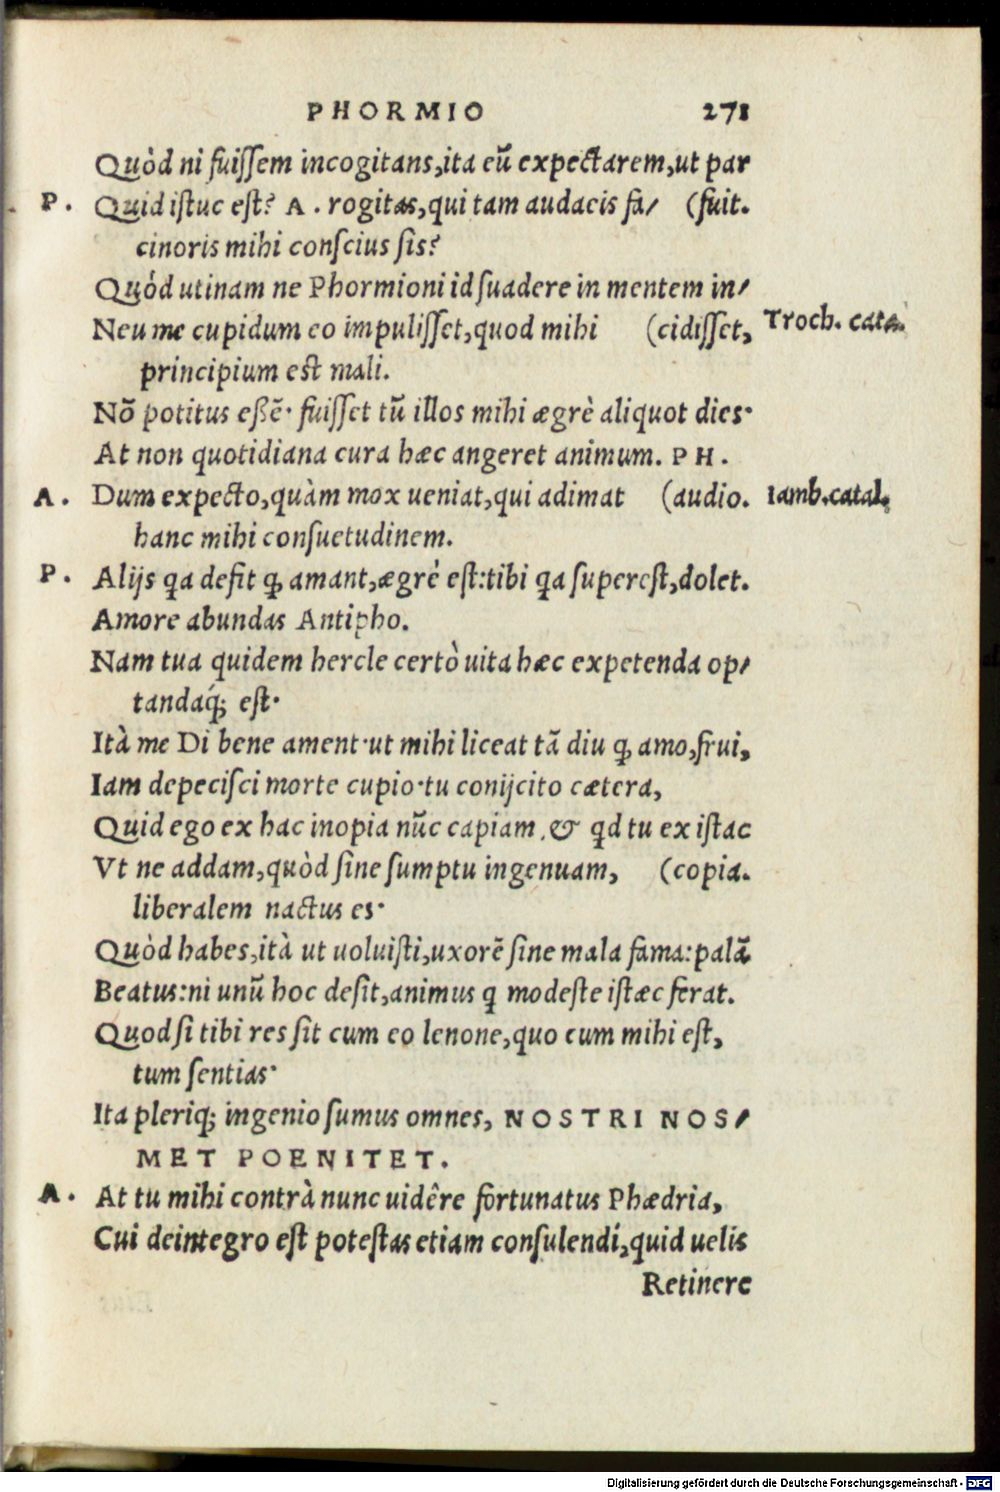 PHORMIO 271
Quòd ni fuiſſem incogitans,ita eũ expectarem,ut par
P. Quid iſtuc eſt? A. rogitas,qui tam audacis fa/ (fuit.
cinoris mihi conſcius ſis?
Quód utinam ne Phormioni id ſuadere in mentem in/
Neu me cupidum eo impuliſſet,quod mihi (cidiſſet, Troch. cata.
principium eſt mali.
Nõ potitus eßẽ· fuiſſet tũ illos mihi ægrè aliquot dies·
At non quotidiana cura hæc angeret animum. PH.
A. Dum expecto,quàm mox ueniat,qui adimat (audio. Iamb.catal.
hanc mihi conſuetudinem.
P. Alijs qa defit ꝙ amant,ægrè eſt:tibi qa ſupereſt,dolet.
Amore abundas Antipho.
Nam tua quidem hercle certò uita hæc expetenda op/
tandaq́; eſt·
Ità me Di bene ament·ut mihi liceat tã diu ꝙ amo,frui,
Iam depeciſci morte cupio·tu conijcito cætera,
Quid ego ex hac inopia nũc capiam, & qd tu ex iſtac
Vt ne addam,quòd ſine ſumptu ingenuam, (copia.
liberalem nactus es·
Quòd habes,ità ut uoluiſti,uxorẽ ſine mala fama:palã
Beatus:ni unũ hoc deſit,animus q modeſte iſtæc ferat.
Quod ſi tibi res ſit cum eo lenone,quo cum mihi eſt,
tum ſentias·
Ita pleriq; ingenio ſumus omnes, NOSTRI NOS/
MET POENITET.
A. At tu mihi contrà nunc uidêre fortunatus Phædria,
Cui deintegro eſt poteſtas etiam conſulendi,quid uelis
Retinere
Digitalisierung gefördert durch die Deutsche Forschungsgemeinschaft - DFG